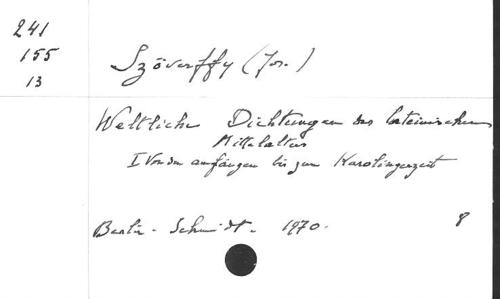 241
155
13
Szövérffy (Jos.)
Weltliche Dichtungen des lateinischen
Mittelalters
I Von den anfängen bis zum Karolingerzeit
Berlin - Schmidt. 1970.
8